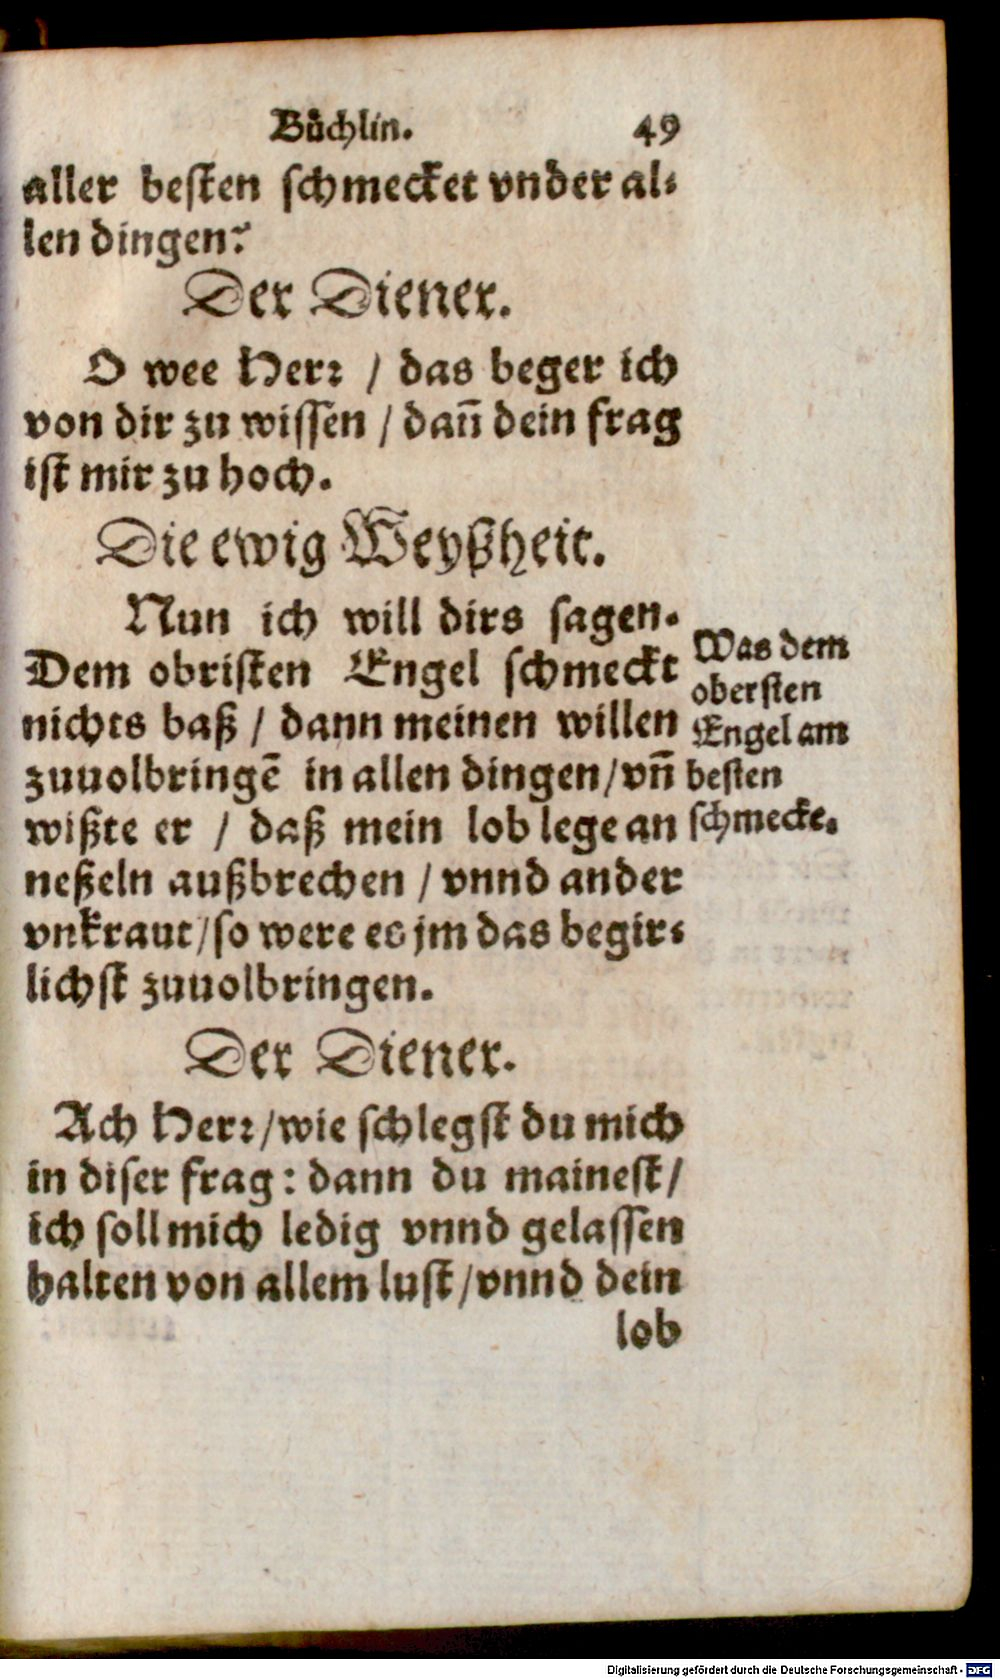 Bůchlin. 49
aller besten schmecket vnder al⸗
len dingen?
Der Diener.
O wee Herꝛ / das beger ich
von dir zu wissen / dañ dein frag
ist mir zu hoch.
Die ewig Weyßheit.
Nun ich will dirs sagen.
Dem obristen Engel schmeckt
nichts baß / dann meinen willen
zuuolbringē in allen dingen / vñ
wißte er / daß mein lob lege an
neßeln außbrechen / vnnd ander
vnkraut / so were es jm das begir⸗
lichst zuuolbringen.
Was dem
obersten
Engel am
besten
schmecke.
Der Diener.
Ach Herꝛ / wie schlegst du mich
in diser frag: dann du mainest /
ich soll mich ledig vnnd gelassen
halten von allem lust / vnnd dein
lob
Digitalisierung gefördert durch die Deutsche Forschungsgemeinschaft - DFG